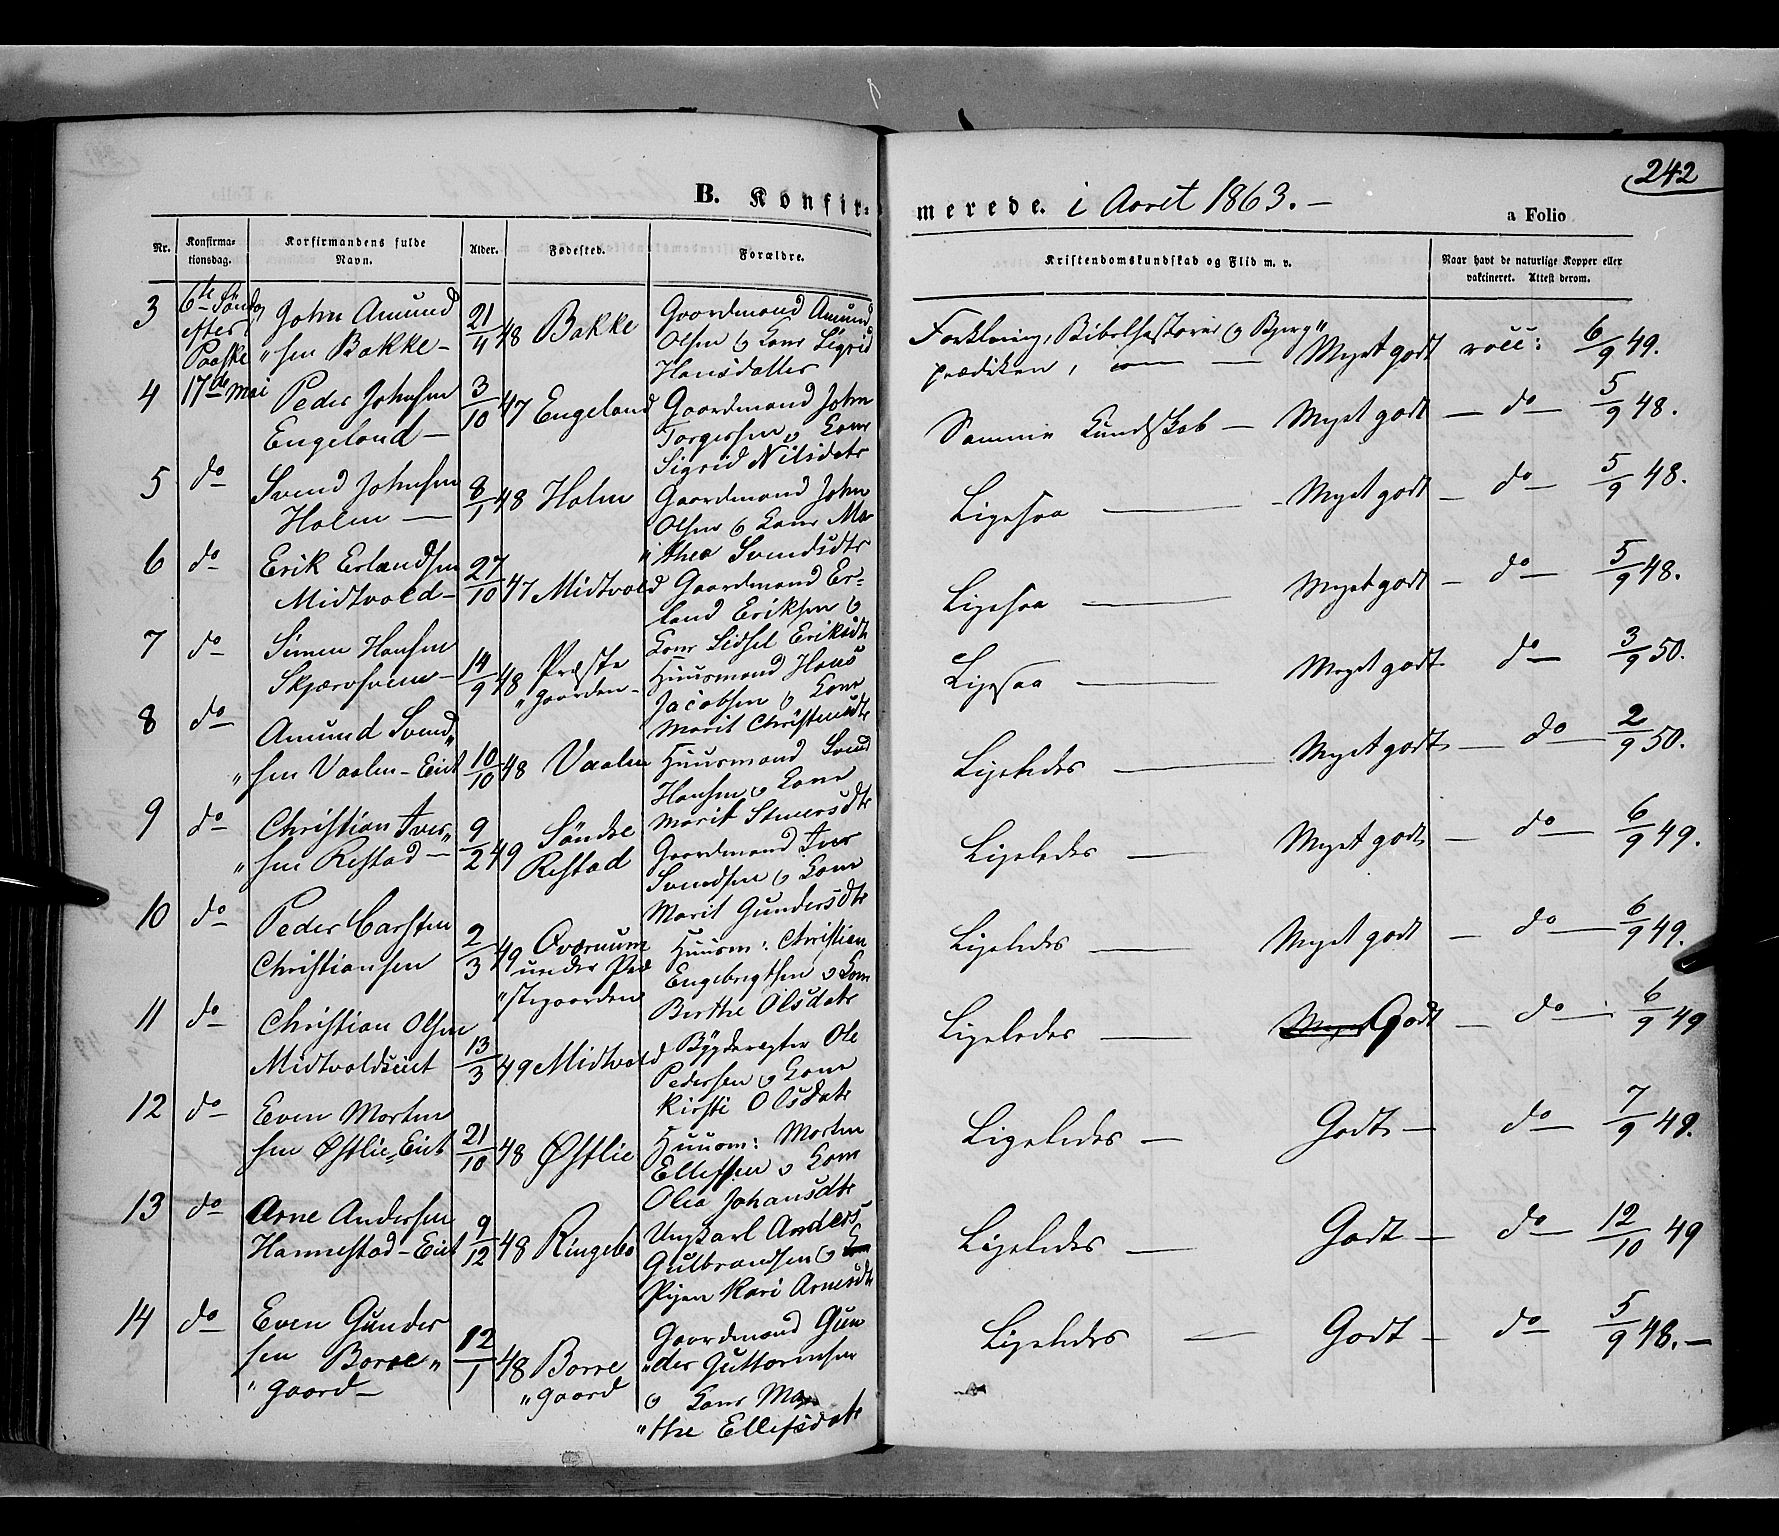 242
B. Konfir-
merede. i Aaret 1863. —
a Folio
Nr.
Konfirma-
tionsdag.
Korfirmandens fulde
Navn.
Alder.
Fødested.
Forældre.
Kristendomskundskab og Flid m. v.
Naar havt de naturlige Kopper eller
vaktineret. Attest derom.
3
6te Søndag
efter
Paaske
17de Mai
John Amund
„sen Bakke —
21/4 48
Bakke
Gaardmand Amund
Olsen og Kone Sigrid
Hansdatter
Forklaring, Bibelhistorie og Bjerg„
prædiken,
Meget godt
vacc: 6/9 49.
4
Peder Johnsen
Engeland —
3/10 47
Engeland
Gaardmand John
Torgersen og Kone
Sigrid Nilsdatr
Samme Kundskab — Meget godt — do — 5/9 48.
5
do
Svend Johnsen
Holm —
8/1 48
Holm
Gaardmand John
Olsen og Kone Ma
„thea Svendsdtr
Ligesaa — Meget godt — do — 5/9 48.
6
do
Erik Erlandsen
Midtvold —
27/10 47
Midtvold
Gaardmand Er=
land Eriksen og
Kone Sidsel Eriksdtr
Ligesaa — Meget godt — do — 5/9 48.
7
do
Simen Hansen
Skjærvsveen —
14/9 48
Præste
„gaarden —
Huusmand Hans
Jacobsen og Kone
Marit Christensdtr
Ligesaa — Meget godt do — 3/9 50.
8
do
Amund Svend„
„sen Vaalen-Eiet
10/10 48
Vaalen
Huusmand Svend
Hansen og Kone
Marit Simensdtr
Ligeledes — Meget godt — do — 2/9 50.
9
do
Christian Iver„
„sen Restad —
9/2 49
Søndre
Restad
Gaardmand Iver
Svendsen og Kone
Marit Gundersdtr
Ligeledes — Meget godt — do — 6/9 49.
10
do
Peder Carsten
Christiansen
2/3 49
under Præ
„stegaarden
Huusm: Christian
Engebrigtsen og Kone
Berthe Olsdatr
Ligeledes — Meget godt — do — 6/9 49.
11
do
Christian Olsen
Midtvoldseiet
13/3 49
Midtvold
Ole
Pedersen og Kone
Kirsti Olsdatr
Ligeledes — Meget Godt — do — 6/9 49
12
do
Even Morten
sen Østlie-Eiet
21/10 48
Østlie
Huusm: Morten
Ellefsen og Kone
Olea Johansdtr
Ligeledes — Godt — do — 7/9 49.
13
do
Arne Andersen
Hannestad-Eiet
9/12 48
Ringebo
Ungkarl Anders
Gulbrandsen og Kone
Pigen Kari Arnesdtr
Ligeledes — Godt — do — 12/10 49
14
do
Even Gunder
sen Borre„
„gaard —
12/1 48
Borre
„gaard
Gaardmand Gun
„der Guttormsen
og Kone Mar
„the Ellefsdatr
Ligeledes — Godt — do — 5/9 48. —